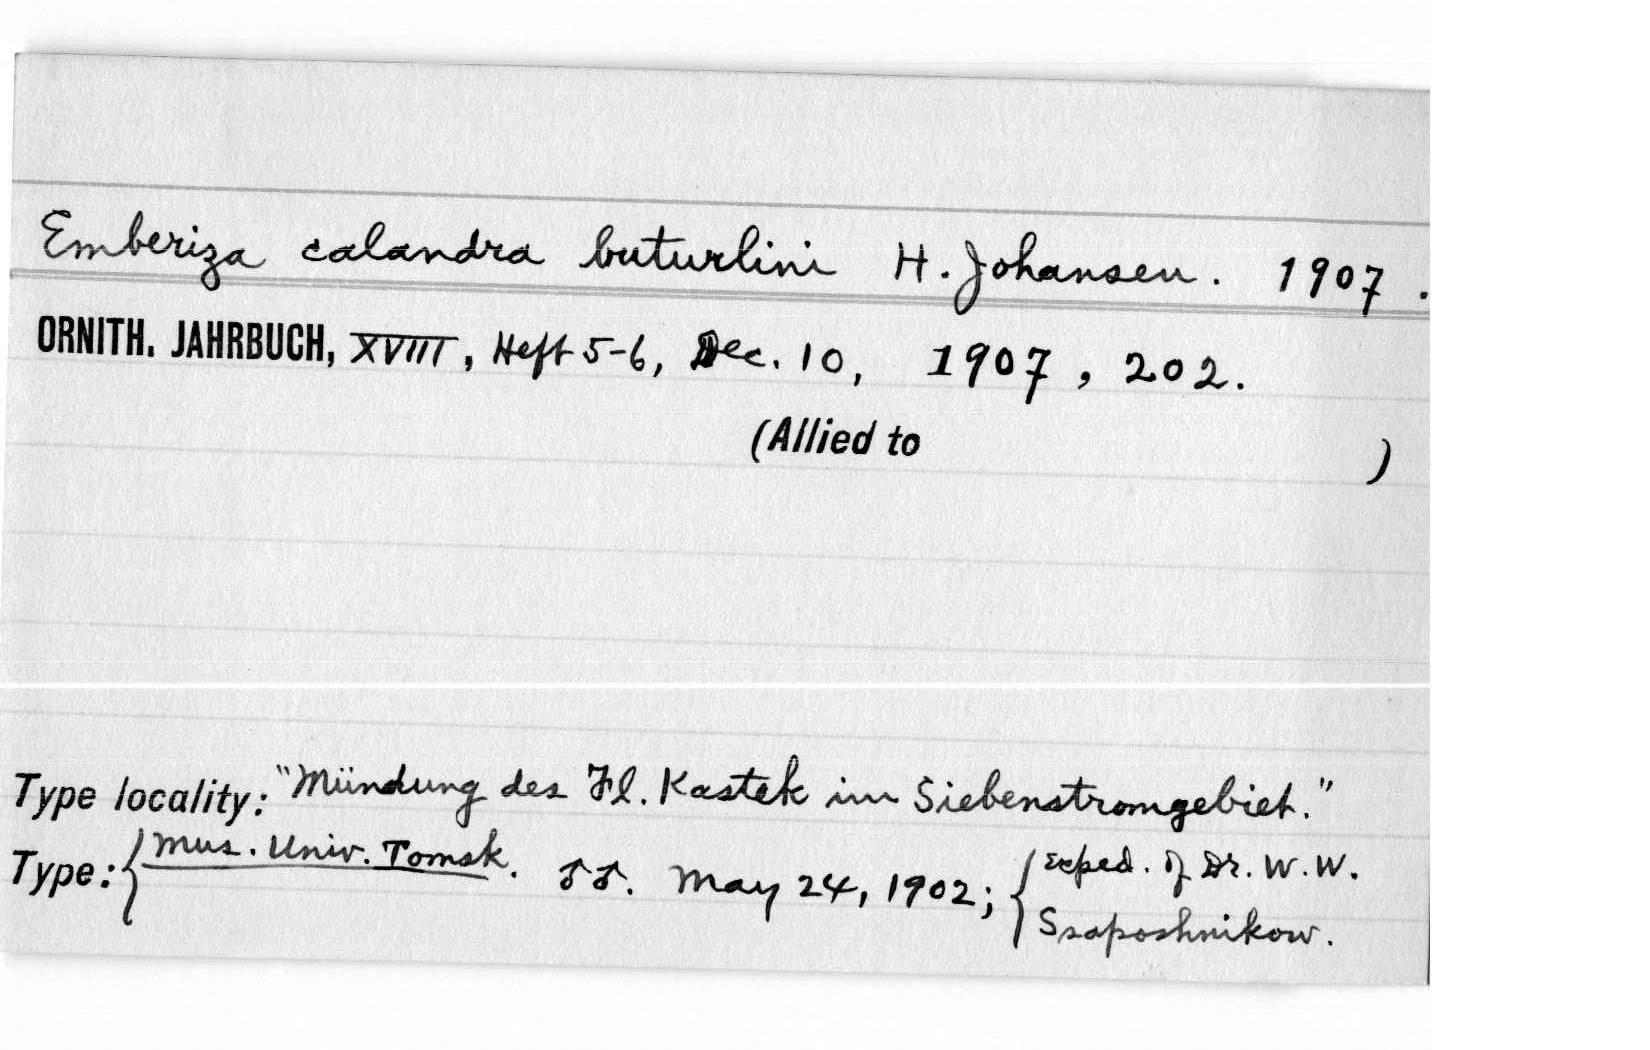 Emberiza calandra buturlini H. Johansen. 1907.
ORNITH. JAHRBUCH, XVIII, Heft 5-6, Dec. 10, 1907, 202.
(Allied to )
Type locality: "Mündung des Fl. Kastek im Siebenstromgebiet."
Type: { Mus. Univ. Tomsk. ♂♂. May 24, 1902; { Exped. of Dr. W. W.
Ssaposhnikow.